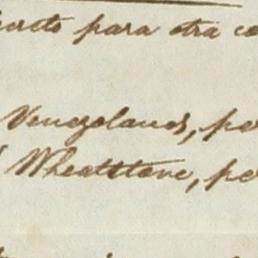 para otra
Venezolanos, po
Wheatstone, po